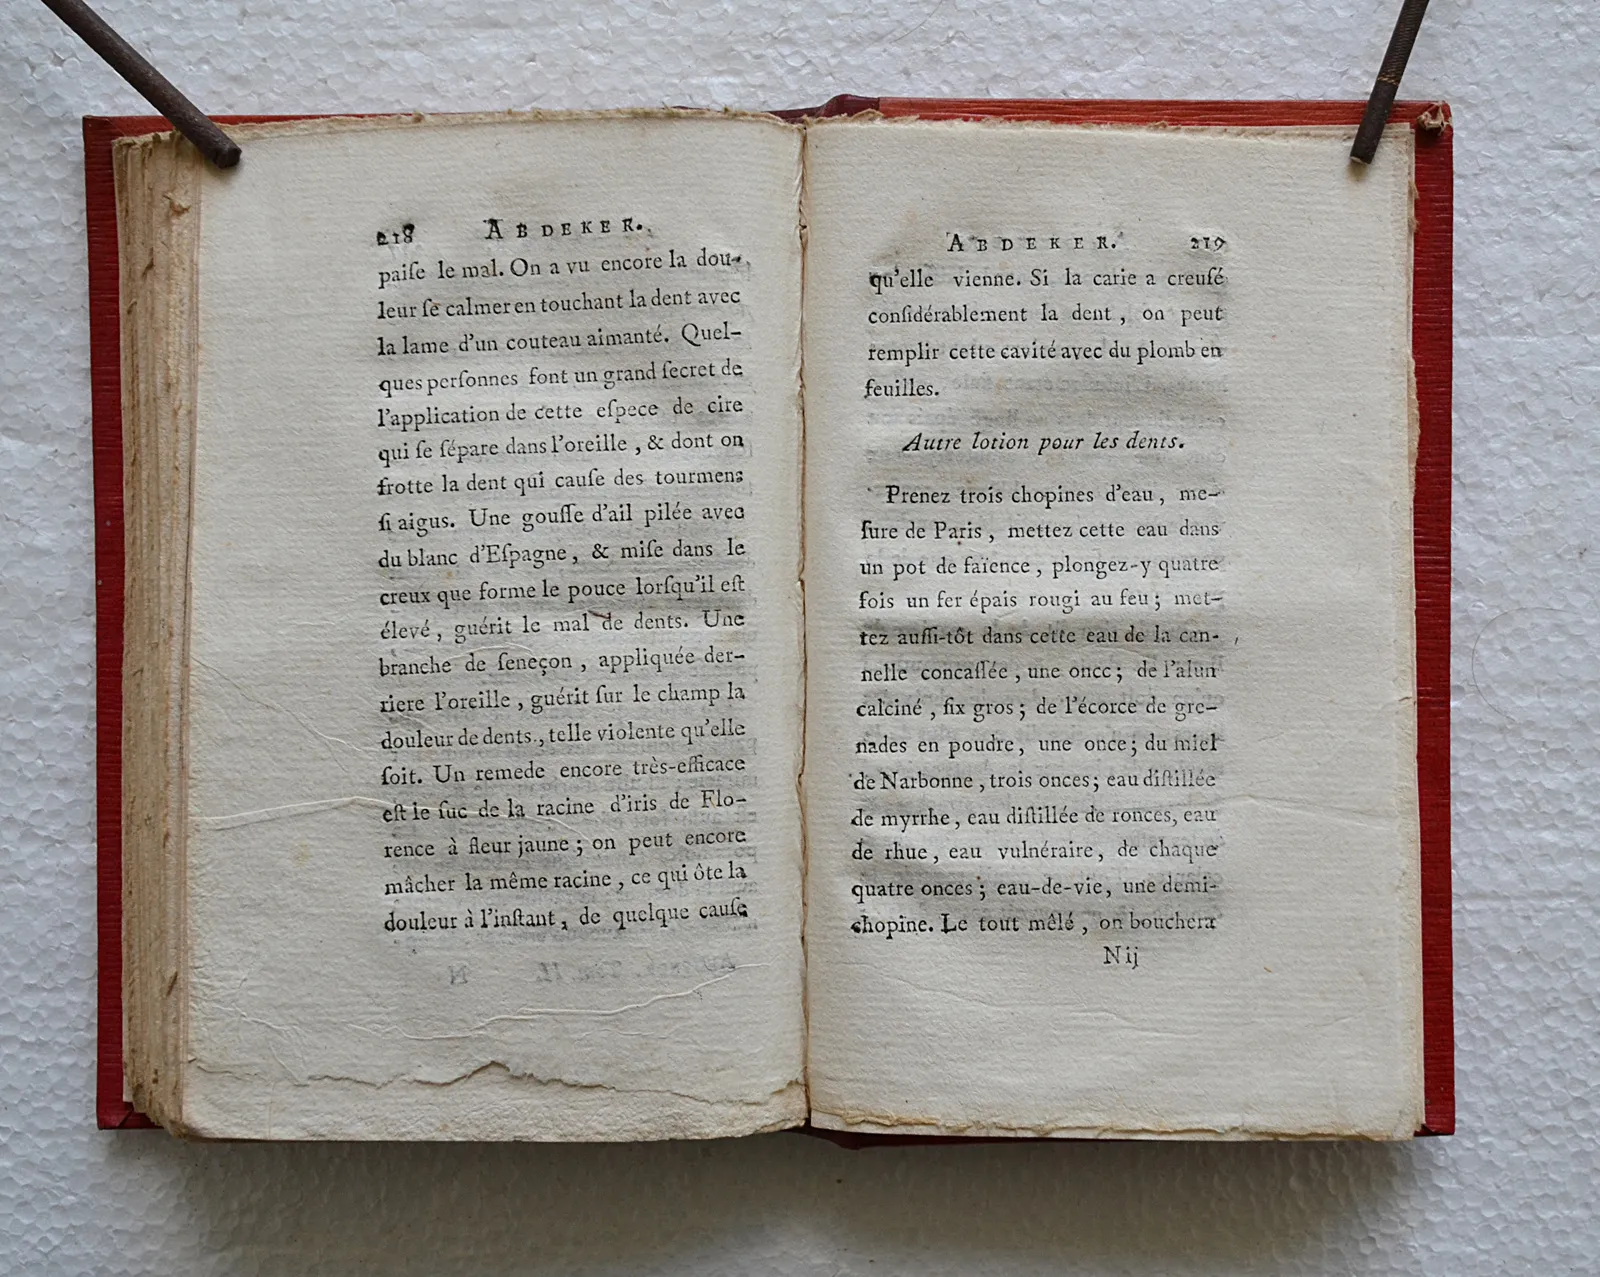 218 ABDEKER.
paiſe le mal. On a vu encore la dou-
leur ſe calmer en touchant la dent avec
la lame d'un couteau aimanté. Quel-
ques perſonnes font un grand ſecret de
l'application de cette eſpece de cire
qui ſe ſépare dans l'oreille, & dont on
frotte la dent qui cauſe des tourmens
ſi aigus. Une gouſſe d'ail pilée avec
du blanc d'Eſpagne, & miſe dans le
creux que forme le pouce lorſqu'il eſt
élevé, guérit le mal de dents. Une
branche de ſeneçon, appliquée der-
riere l'oreille, guérit ſur le champ la
douleur de dents, telle violente qu'elle
ſoit. Un remede encore très-efficace
eſt le ſuc de la racine d'iris de Flo-
rence à fleur jaune; on peut encore
mâcher la même racine, ce qui ôte la
douleur à l'inſtant, de quelque cauſe
ABDEKER. 219
qu'elle vienne. Si la carie a creuſé
conſidérablement la dent, on peut
remplir cette cavité avec du plomb en
feuilles.
Autre lotion pour les dents.
Prenez trois chopines d'eau, me-
ſure de Paris, mettez cette eau dans
un pot de faïence, plongez-y quatre
fois un fer épais rougi au feu; met-
tez auſſi-tôt dans cette eau de la can-
nelle concaſſée, une once; de l'alun
calciné, ſix gros; de l'écorce de gre-
nades en poudre, une once; du miel
de Narbonne, trois onces; eau diſtillée
de myrrhe, eau diſtillée de ronces, eau
de rhue, eau vulnéraire, de chaque
quatre onces; eau-de-vie, une demi-
chopine. Le tout mêlé, on bouchera
Nij